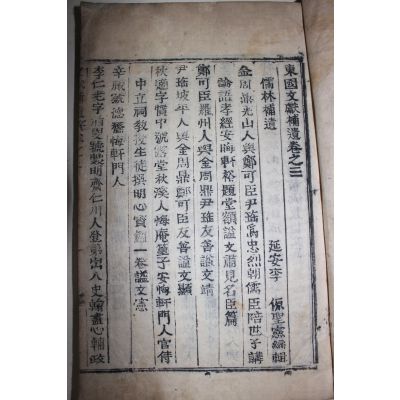 東國文獻補遺卷之三
延安李 佩聖憲編輯
儒林補遺
金周鼎光山人與鄭可臣尹珤爲忠烈朝儒臣陪世子講
論語孝經安晦軒松題堂額諡文肅見名臣篇
鄭可臣羅州人與金周鼎尹珤友善諡文靖
尹珤坡平人與金周鼎鄭可臣友善諡文顯
秋適字慣中號露堂秋溪人悔庵 子安晦軒門人官侍
中立祠教授生徒撰明心寶鑑一卷諡文憲
辛 號德 晦軒門人
李仁 字 號 明齋仁川人登第出入史翰盡心輔政